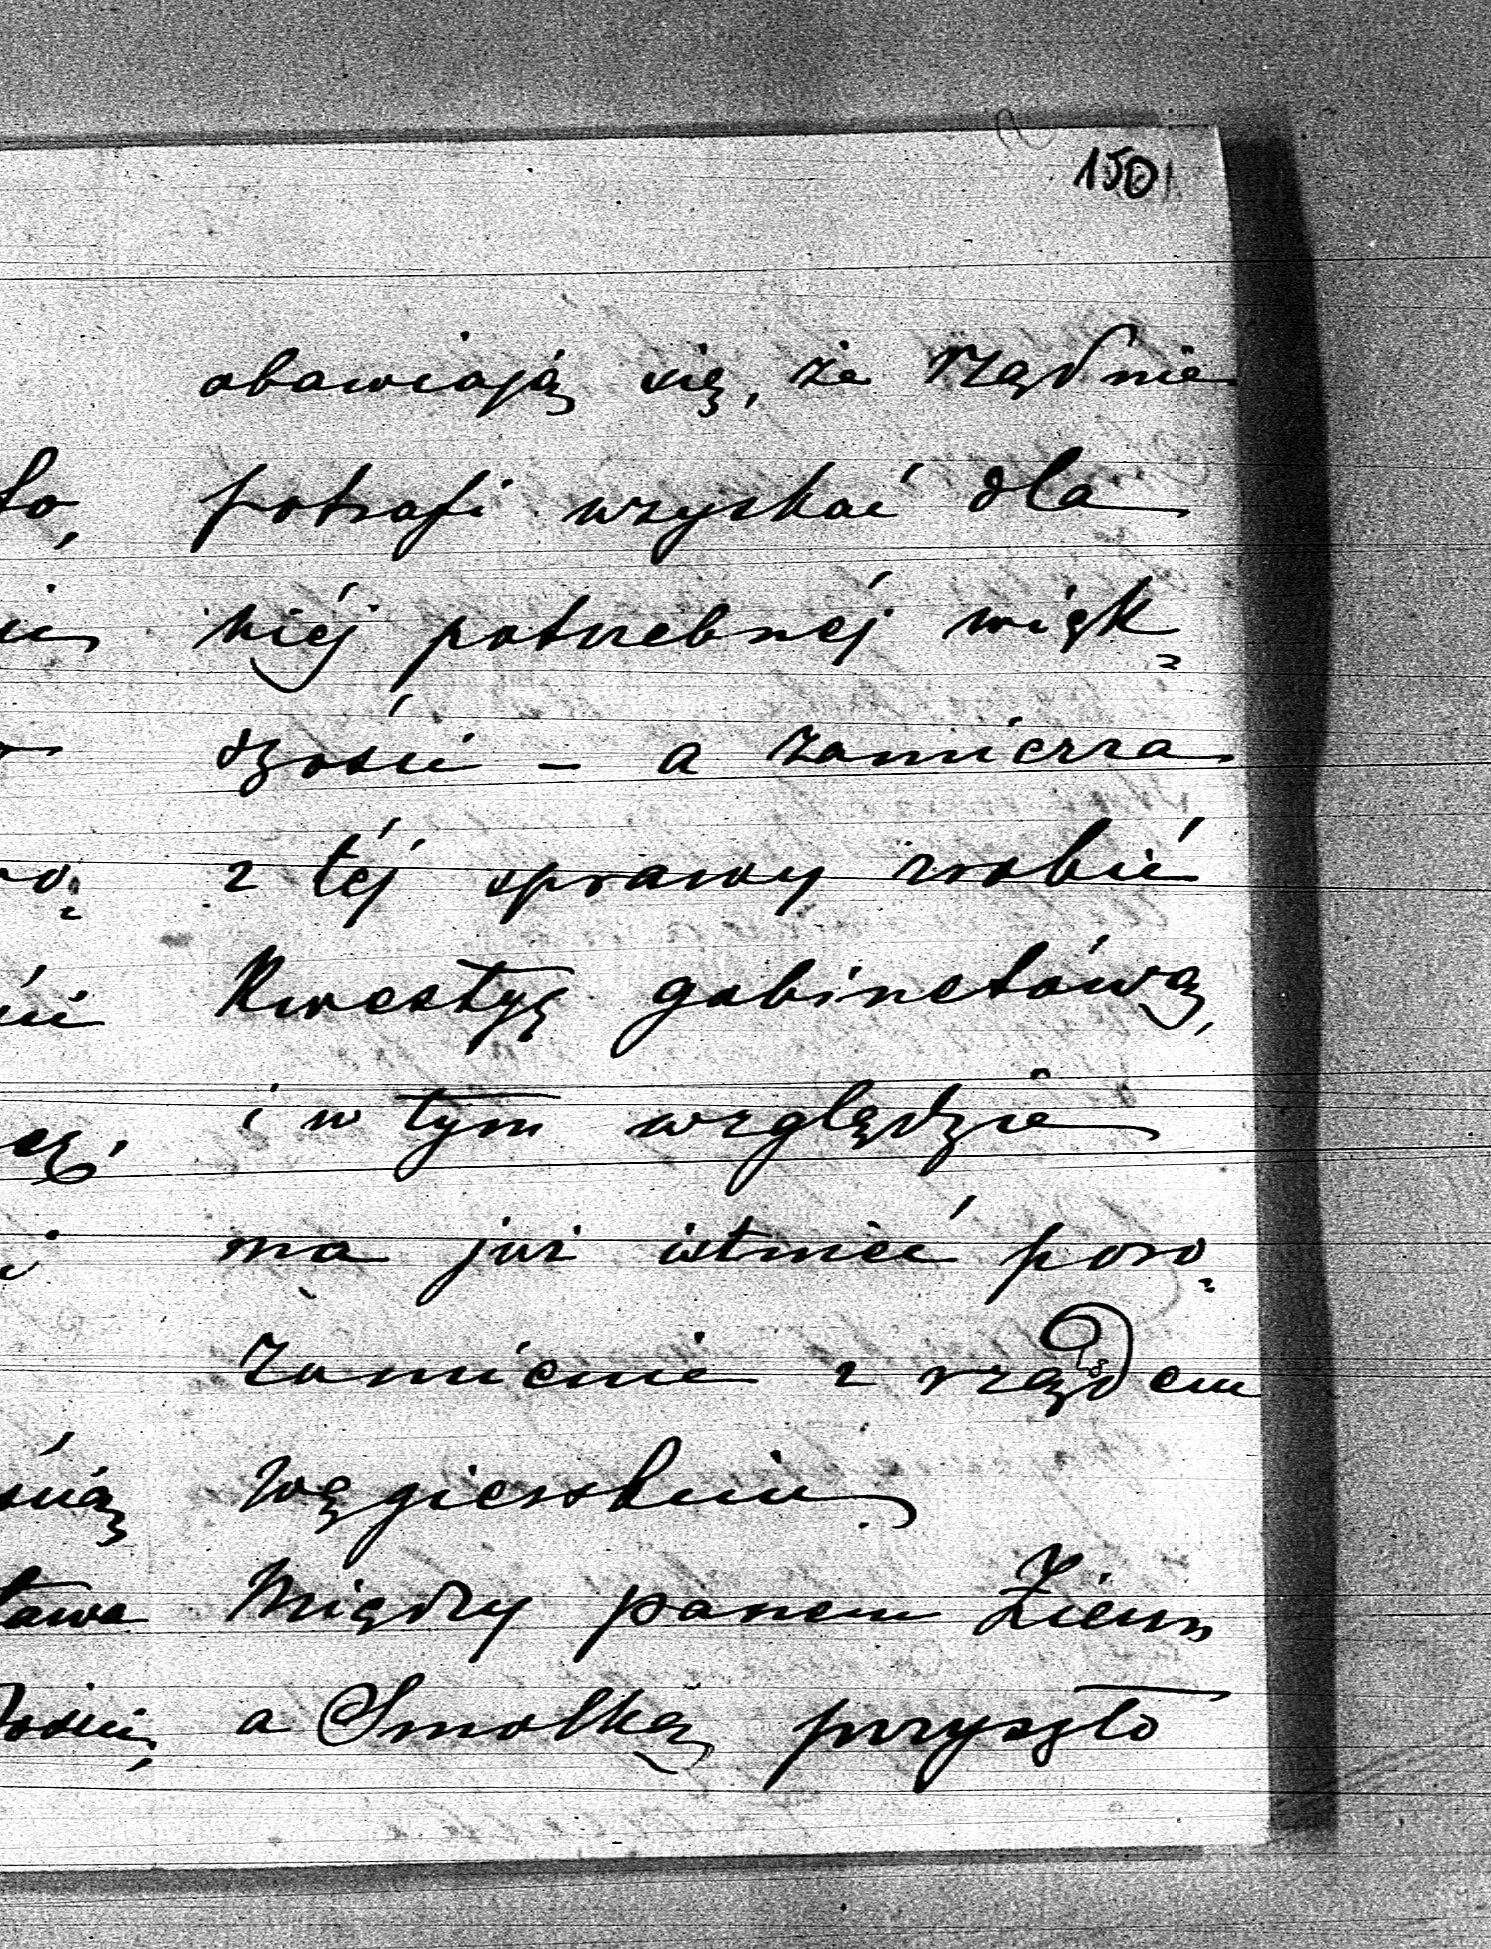 150
obawiają się, że rząd nie
potrafi uzyskać dla
niéj potrzebnéj więk=
szości – a zamierza
z téj sprawy zrobić
kwestyę gabinetową,
i w tym względzie
ma już istnieć poro=
zumienie z rządem
węgierskim.
Między panem Ziem.
a Smolką przyszło